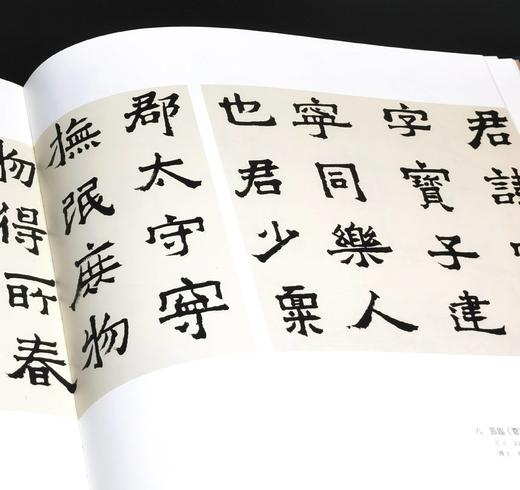 君
字寶子建
寧同樂人
也君少稟
郡太守寧
撫氓庶物
物得所春